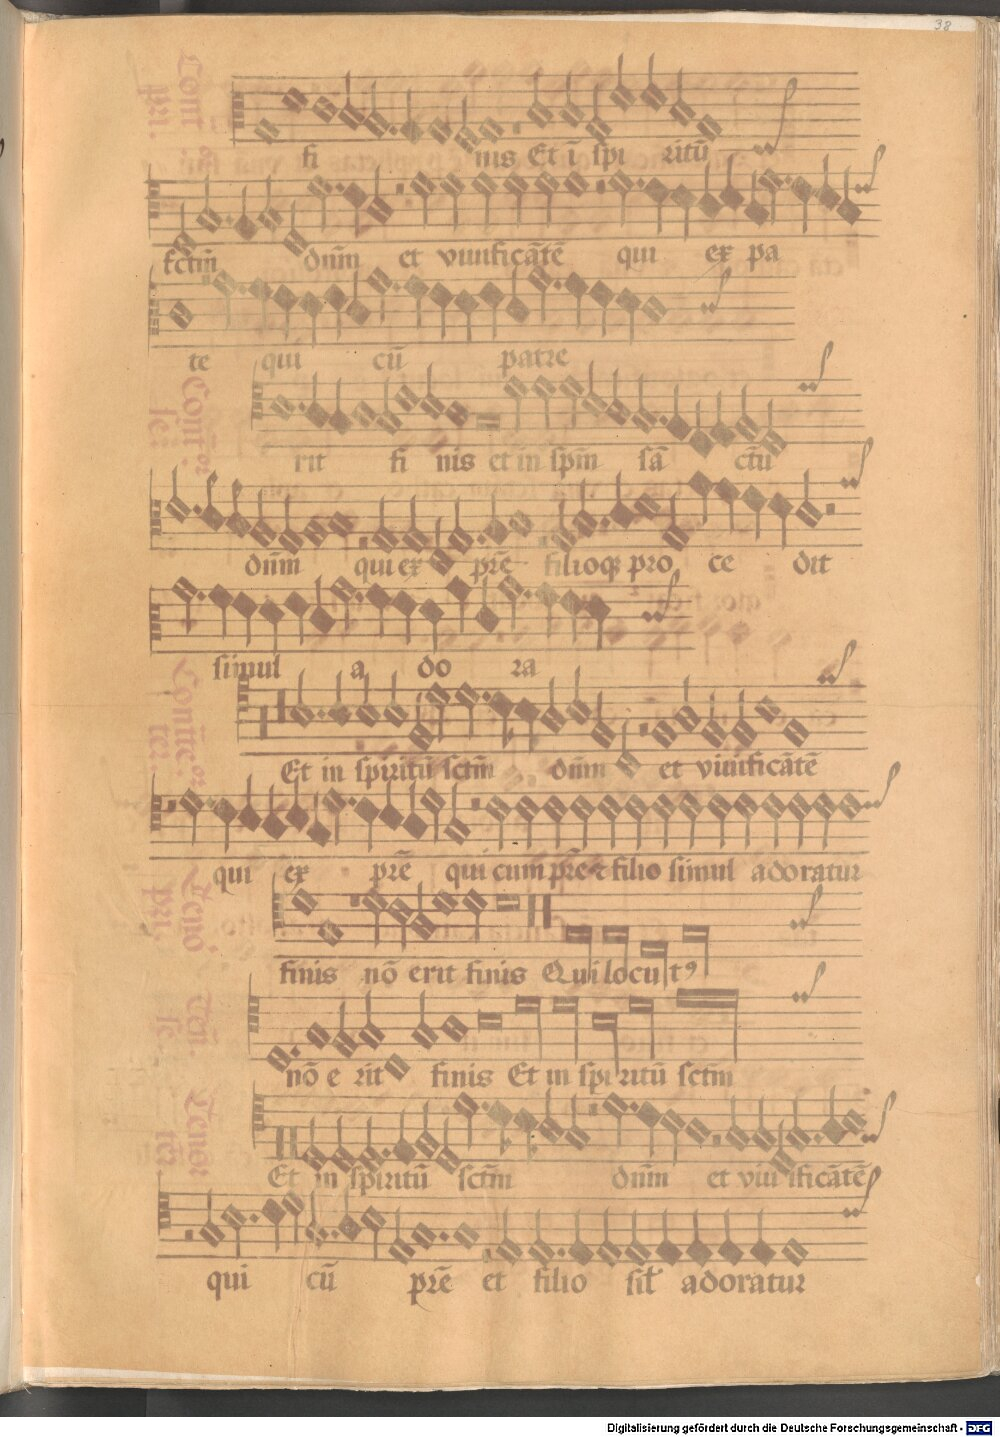 38
Cont̃ or pri.
fi nis Et ĩ spi ritũ
sctm̃ dñm et viuificãtẽ qui ex pa
te qui cũ patre
Cont̃ or se:
rit fi nis et in spm̃ sã ctũ
dñm qui ex prẽ filioq̃ pro ce dit
simul a do ra
ter.
Et in spiritũ sctm̃ dñm et viuificãtẽ
qui ex prẽ qui cum prẽ et filio simul adoratur
Tenõ pri.
finis nõ erit finis Qui locut9
Teñ. se.
nõ e rit finis Et in spiritũ sctm̃
Tenor
Et in spiritũ sctm̃ dñm et viuificãtẽ
qui cũ prẽ et filio sil̃ adoratur
Digitalisierung gefördert durch die Deutsche Forschungsgemeinschaft - DFG